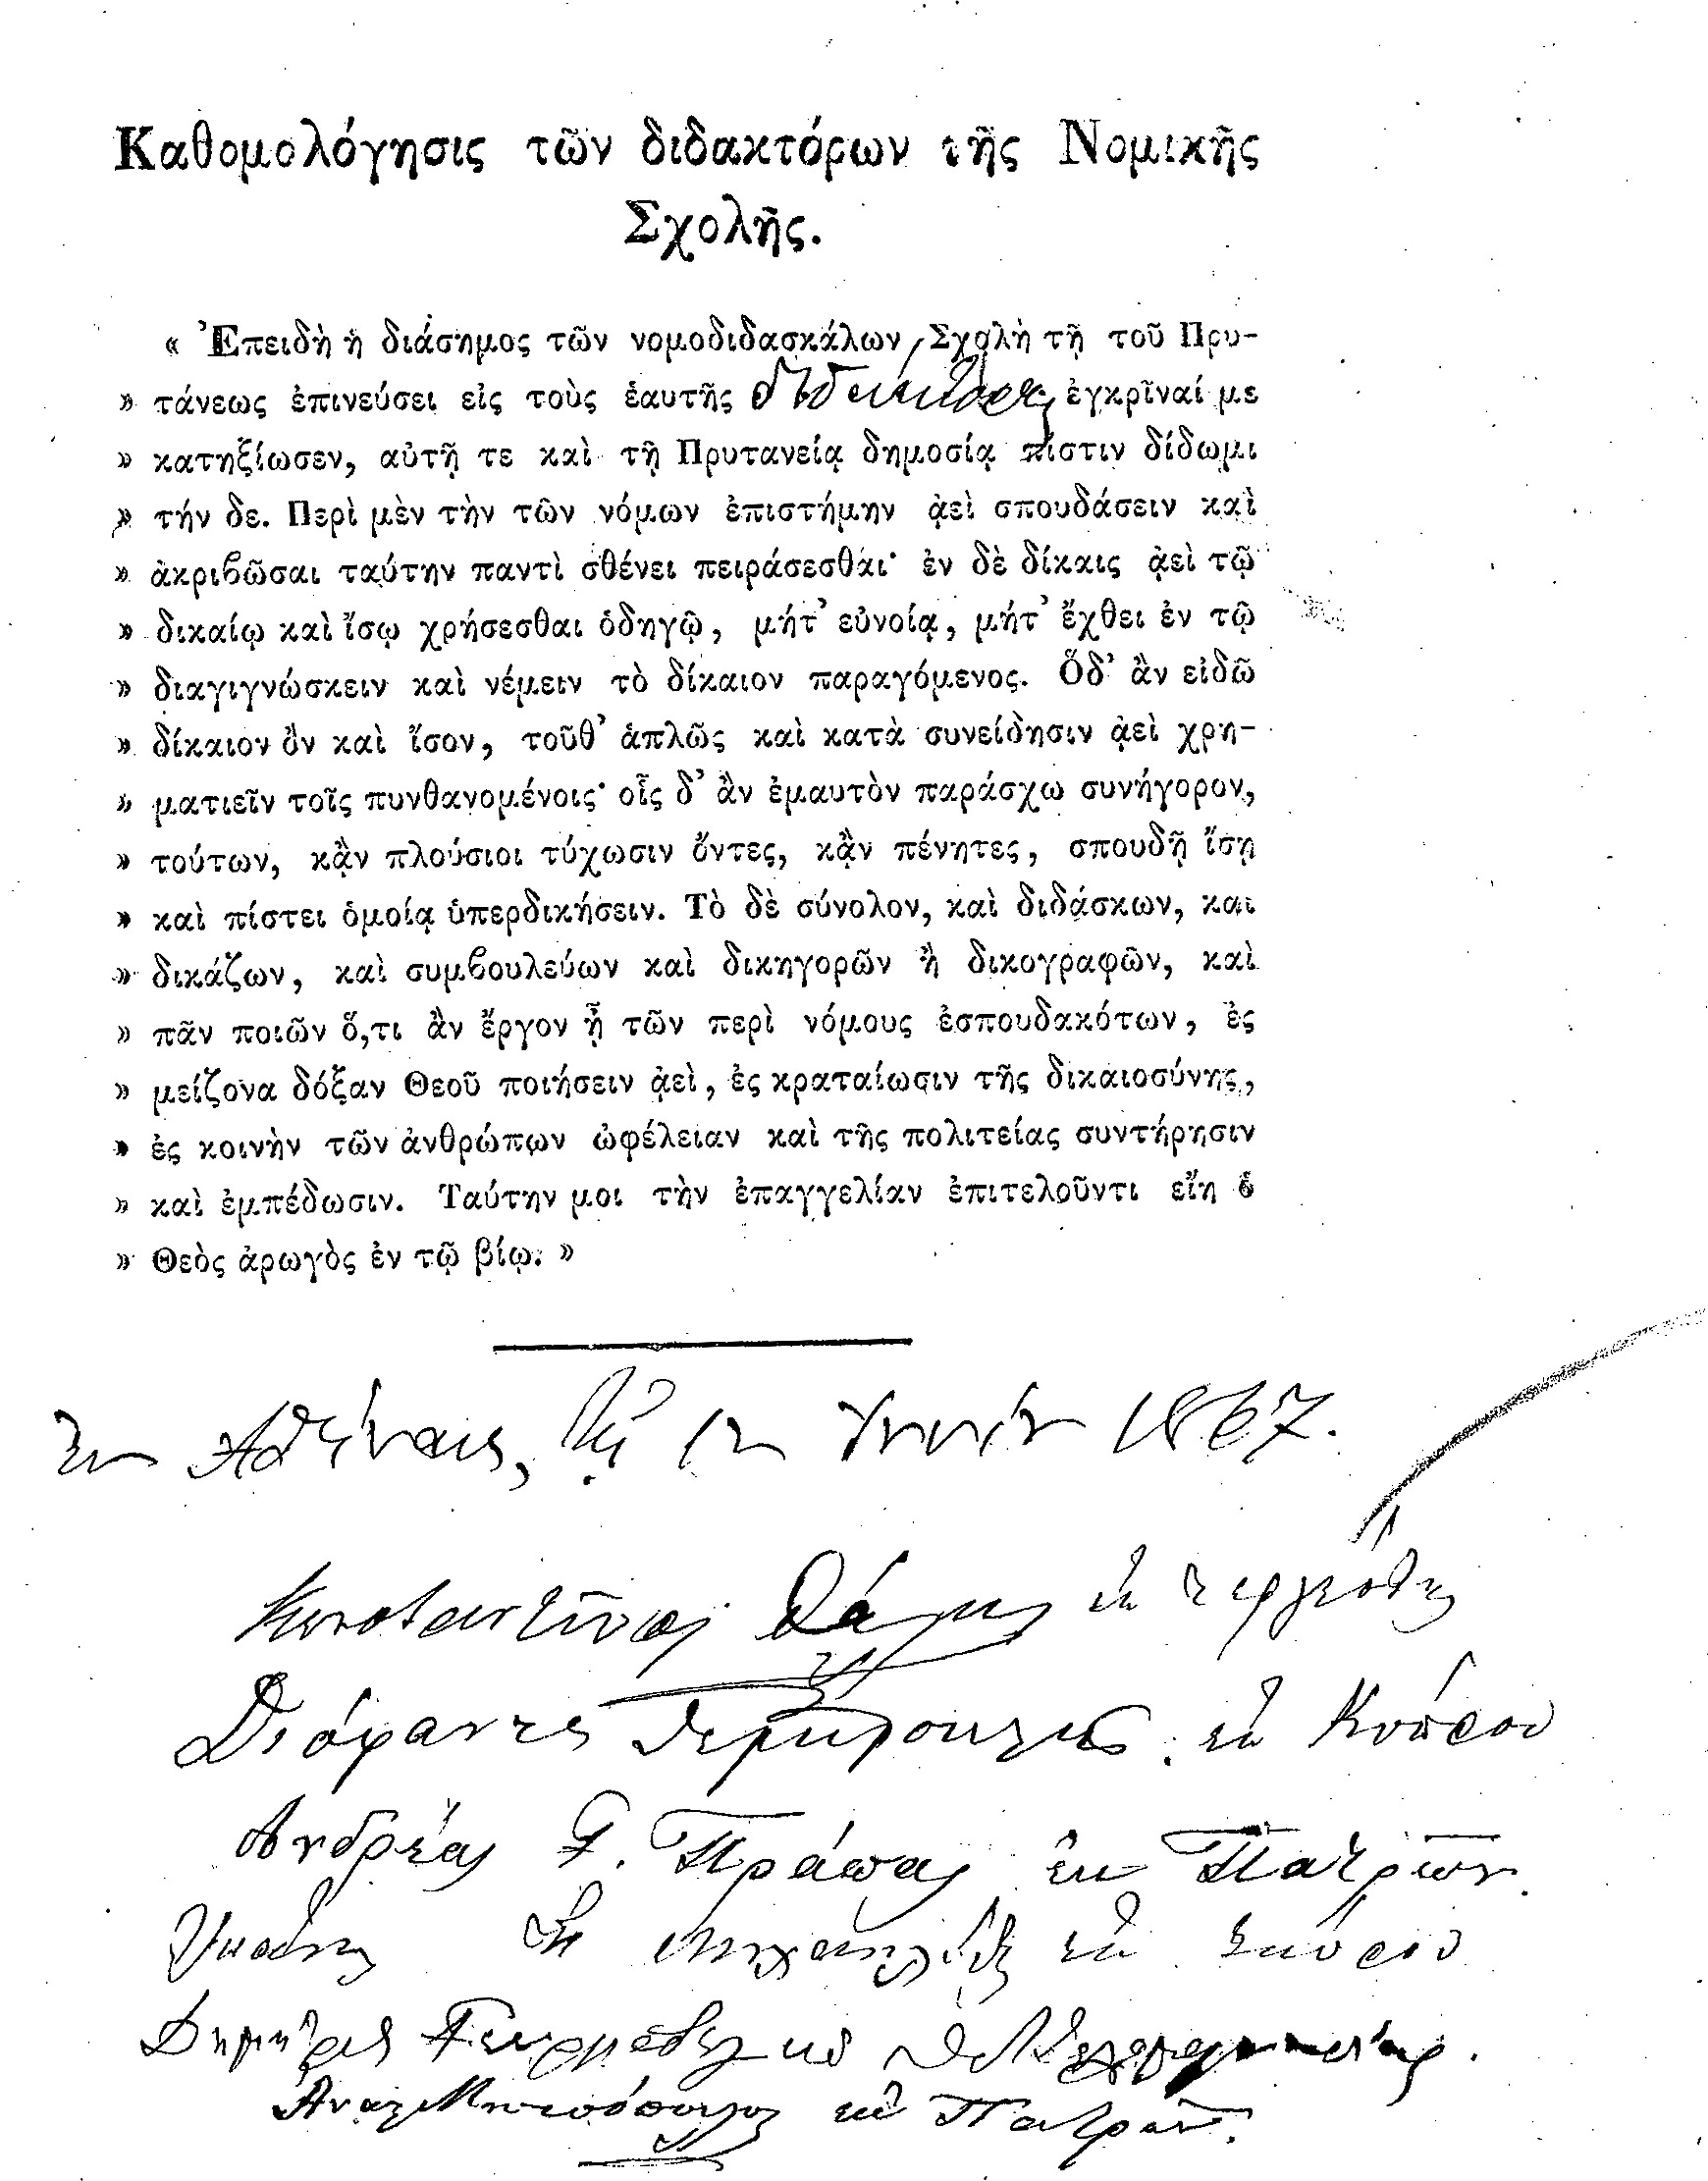 Καθομολόγησις τῶν διδακτόρων τῆς Νομικῆς
Σχολῆς.
« Ἐπειδὴ ἡ διάσημος τῶν νομοδιδασκάλων Σχολὴ τῇ τοῦ Πρυ-
» τάνεως ἐπινεύσει εἰς τοὺς ἑαυτῆς διδάκτορας ἐγκρῖναί με
» κατηξίωσεν, αὐτῇ τε καὶ τῇ Πρυτανείᾳ δημοσίᾳ πίστιν δίδωμι
» τήν δε. Περὶ μὲν τὴν τῶν νόμων ἐπιστήμην ᾀεὶ σπουδάσειν καὶ
» ἀκριβῶσαι ταύτην παντὶ σθένει πειράσεσθαι· ἐν δὲ δίκαις ᾀεὶ τῷ
» δικαίῳ καὶ ἴσῳ χρήσεσθαι ὁδηγῷ, μήτ' εὐνοίᾳ, μήτ' ἔχθει ἐν τῷ
» διαγιγνώσκειν καὶ νέμειν τὸ δίκαιον παραγόμενος. Ὅδ' ἂν εἰδῶ
» δίκαιον ὂν καὶ ἴσον, τοῦθ' ἁπλῶς καὶ κατὰ συνείδησιν ᾀεὶ χρη-
» ματιεῖν τοῖς πυνθανομένοις· οἷς δ' ἂν ἐμαυτὸν παράσχω συνήγορον,
» τούτων, κᾂν πλούσιοι τύχωσιν ὄντες, κᾂν πένητες, σπουδῇ ἴσῃ
» καὶ πίστει ὁμοίᾳ ὑπερδικήσειν. Τὸ δὲ σύνολον, καὶ διδάσκων, και
» δικάζων, καὶ συμβουλεύων καὶ δικηγορῶν ἢ δικογραφῶν, καὶ
» πᾶν ποιῶν ὅ,τι ἂν ἔργον ᾖ τῶν περὶ νόμους ἐσπουδακότων, ἐς
» μείζονα δόξαν Θεοῦ ποιήσειν ᾀεὶ, ἐς κραταίωσιν τῆς δικαιοσύνης,
» ἐς κοινὴν τῶν ἀνθρώπων ὠφέλειαν καὶ τῆς πολιτείας συντήρησιν
» καὶ ἐμπέδωσιν. Ταύτην μοι τὴν ἐπαγγελίαν ἐπιτελοῦντι εἴη ὁ
» Θεὸς ἀρωγὸς ἐν τῷ βίῳ. »
Ἐν Ἀθήναις, τῇ 12 1867.
Κωνσταντῖνος ἐκ
Διόφαντος ἐκ Κύπρου
Ἀνδρέας Γ. Πράπας ἐκ Πατρῶν.
ἐκ Σκύρου
Δημήτριος
ἐκ Πατρῶν.